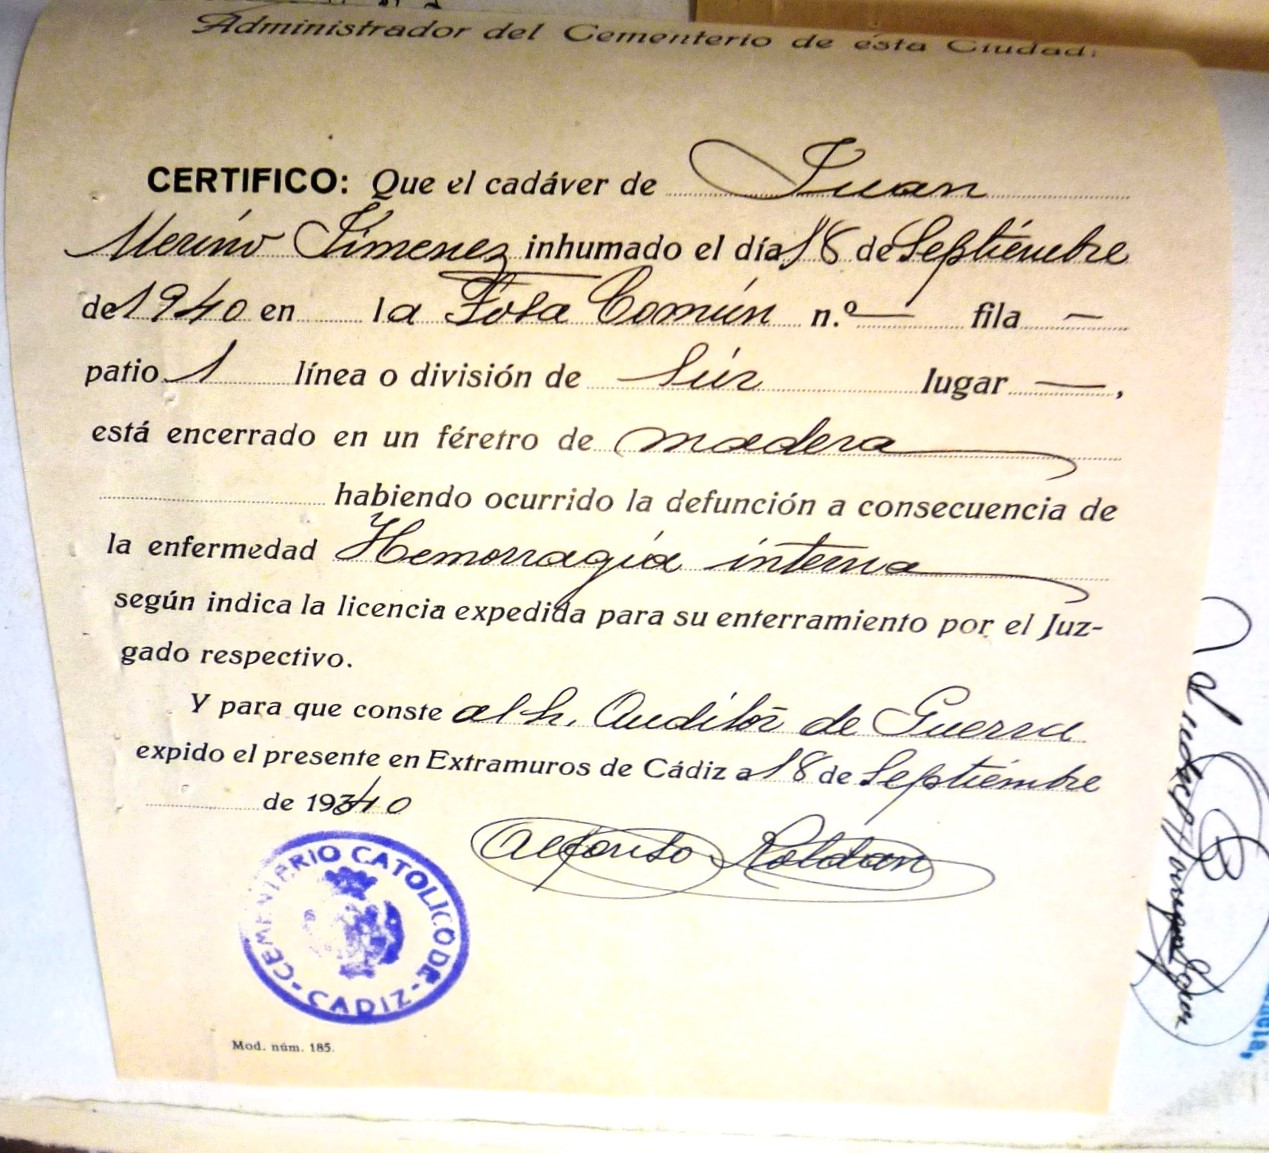 Administrador del Cementerio de ésta Ciudad:
CERTIFICO: Que el cadáver de Juan
Merino Jímenez inhumado el día 18 de Septiémbre
de 1940 en la Fosa Común n.º — fila —
patio 1 línea o división de Súr lugar —,
está encerrado en un féretro de madera
habiendo ocurrido la defunción a consecuencia de
la enfermedad Hemorragía interna
según indica la licencia expedida para su enterramiento por el Juz-
gado respectivo.
Y para que conste al Auditór de Guerra
expido el presente en Extramuros de Cádiz a 18 de Septiémbre
de 1940
Alfonso Roldan
CEMENTERIO CATOLICO DE
-CADIZ-
Mod. núm. 185.